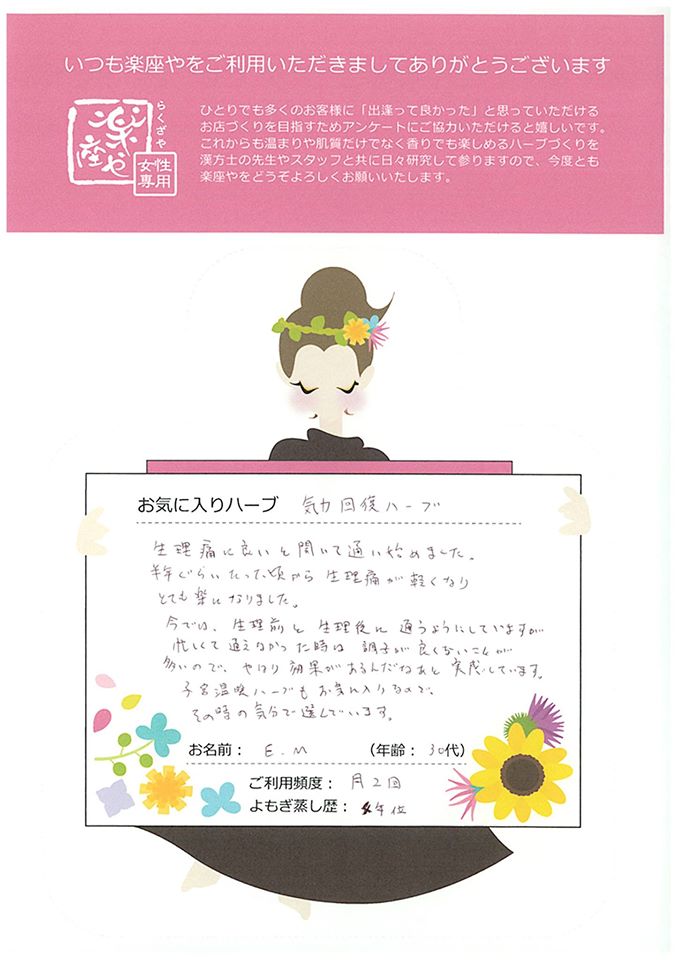 いつも楽座やをご利用いただきましてありがとうございます
らくざや
楽座や
女性専用
ひとりでも多くのお客様に「出逢って良かった」と思っていただける
お店づくりを目指すためアンケートにご協力いただけると嬉しいです。
これからも温まりや肌質だけでなく香りでも楽しめるハーブづくりを
漢方士の先生やスタッフと共に日々研究して参りますので、今度とも
楽座やをどうぞよろしくお願いいたします。
お気に入りハーブ 気力回復ハーブ
生理痛に良いと聞いて通い始めました。
半年ぐらいたった頃から生理痛が軽くなり
とても楽になりました。
今では、生理前と生理後に通うようにしていますが
忙しくて通えなかった時は調子が良くないことが
多いので、やはり効果があるんだなあと実感しています。
子宮温暖ハーブもお気に入りなので、
その時の気分で選んでいます。
お名前： E.M （年齢： 30代）
ご利用頻度： 月2回
よもぎ蒸し歴： 年位